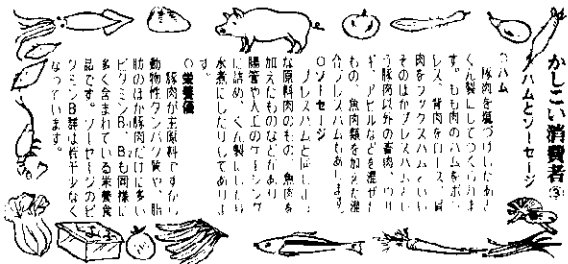 かしこい消費者③
ハムとソーセージ
○ハム
豚肉を塩づけしたあと
くん製にしてつくられま
す。もも肉のハムをボン
レス、背肉をロース、肩
肉をラックスハムといい
そのほかプレスハムとい
う豚肉以外の畜肉、ウサ
ギ、アヒルなどを混ぜた
もの、魚肉類を加えた混
合プレスハムもあります。
○ソーセージ
プレスハムと同じよう
な原料肉のもの、魚肉を
加えたものなどがあり
腸管や人工のケーシング
に詰め、くん製にしたり
水煮にしたりしてありま
す。
○栄養価
豚肉が主原料ですから
動物性タンパク質や、脂
肪のほか豚肉だけに多い
ビタミンB₁、B₂も同様に
多く含まれている栄養食
品です。ソーセージのビ
タミンB群は若干少なく
なっています。